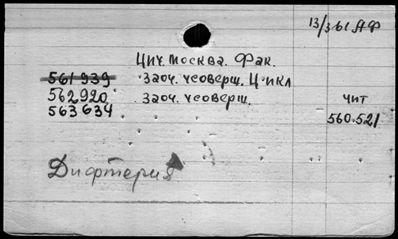 13/361 АФ
Циу. Москва. Фак.
561939 Заоч. усоверш. Цикл
562920 Заоч. усоверш.
563634
чит
560.521
Дифтерия